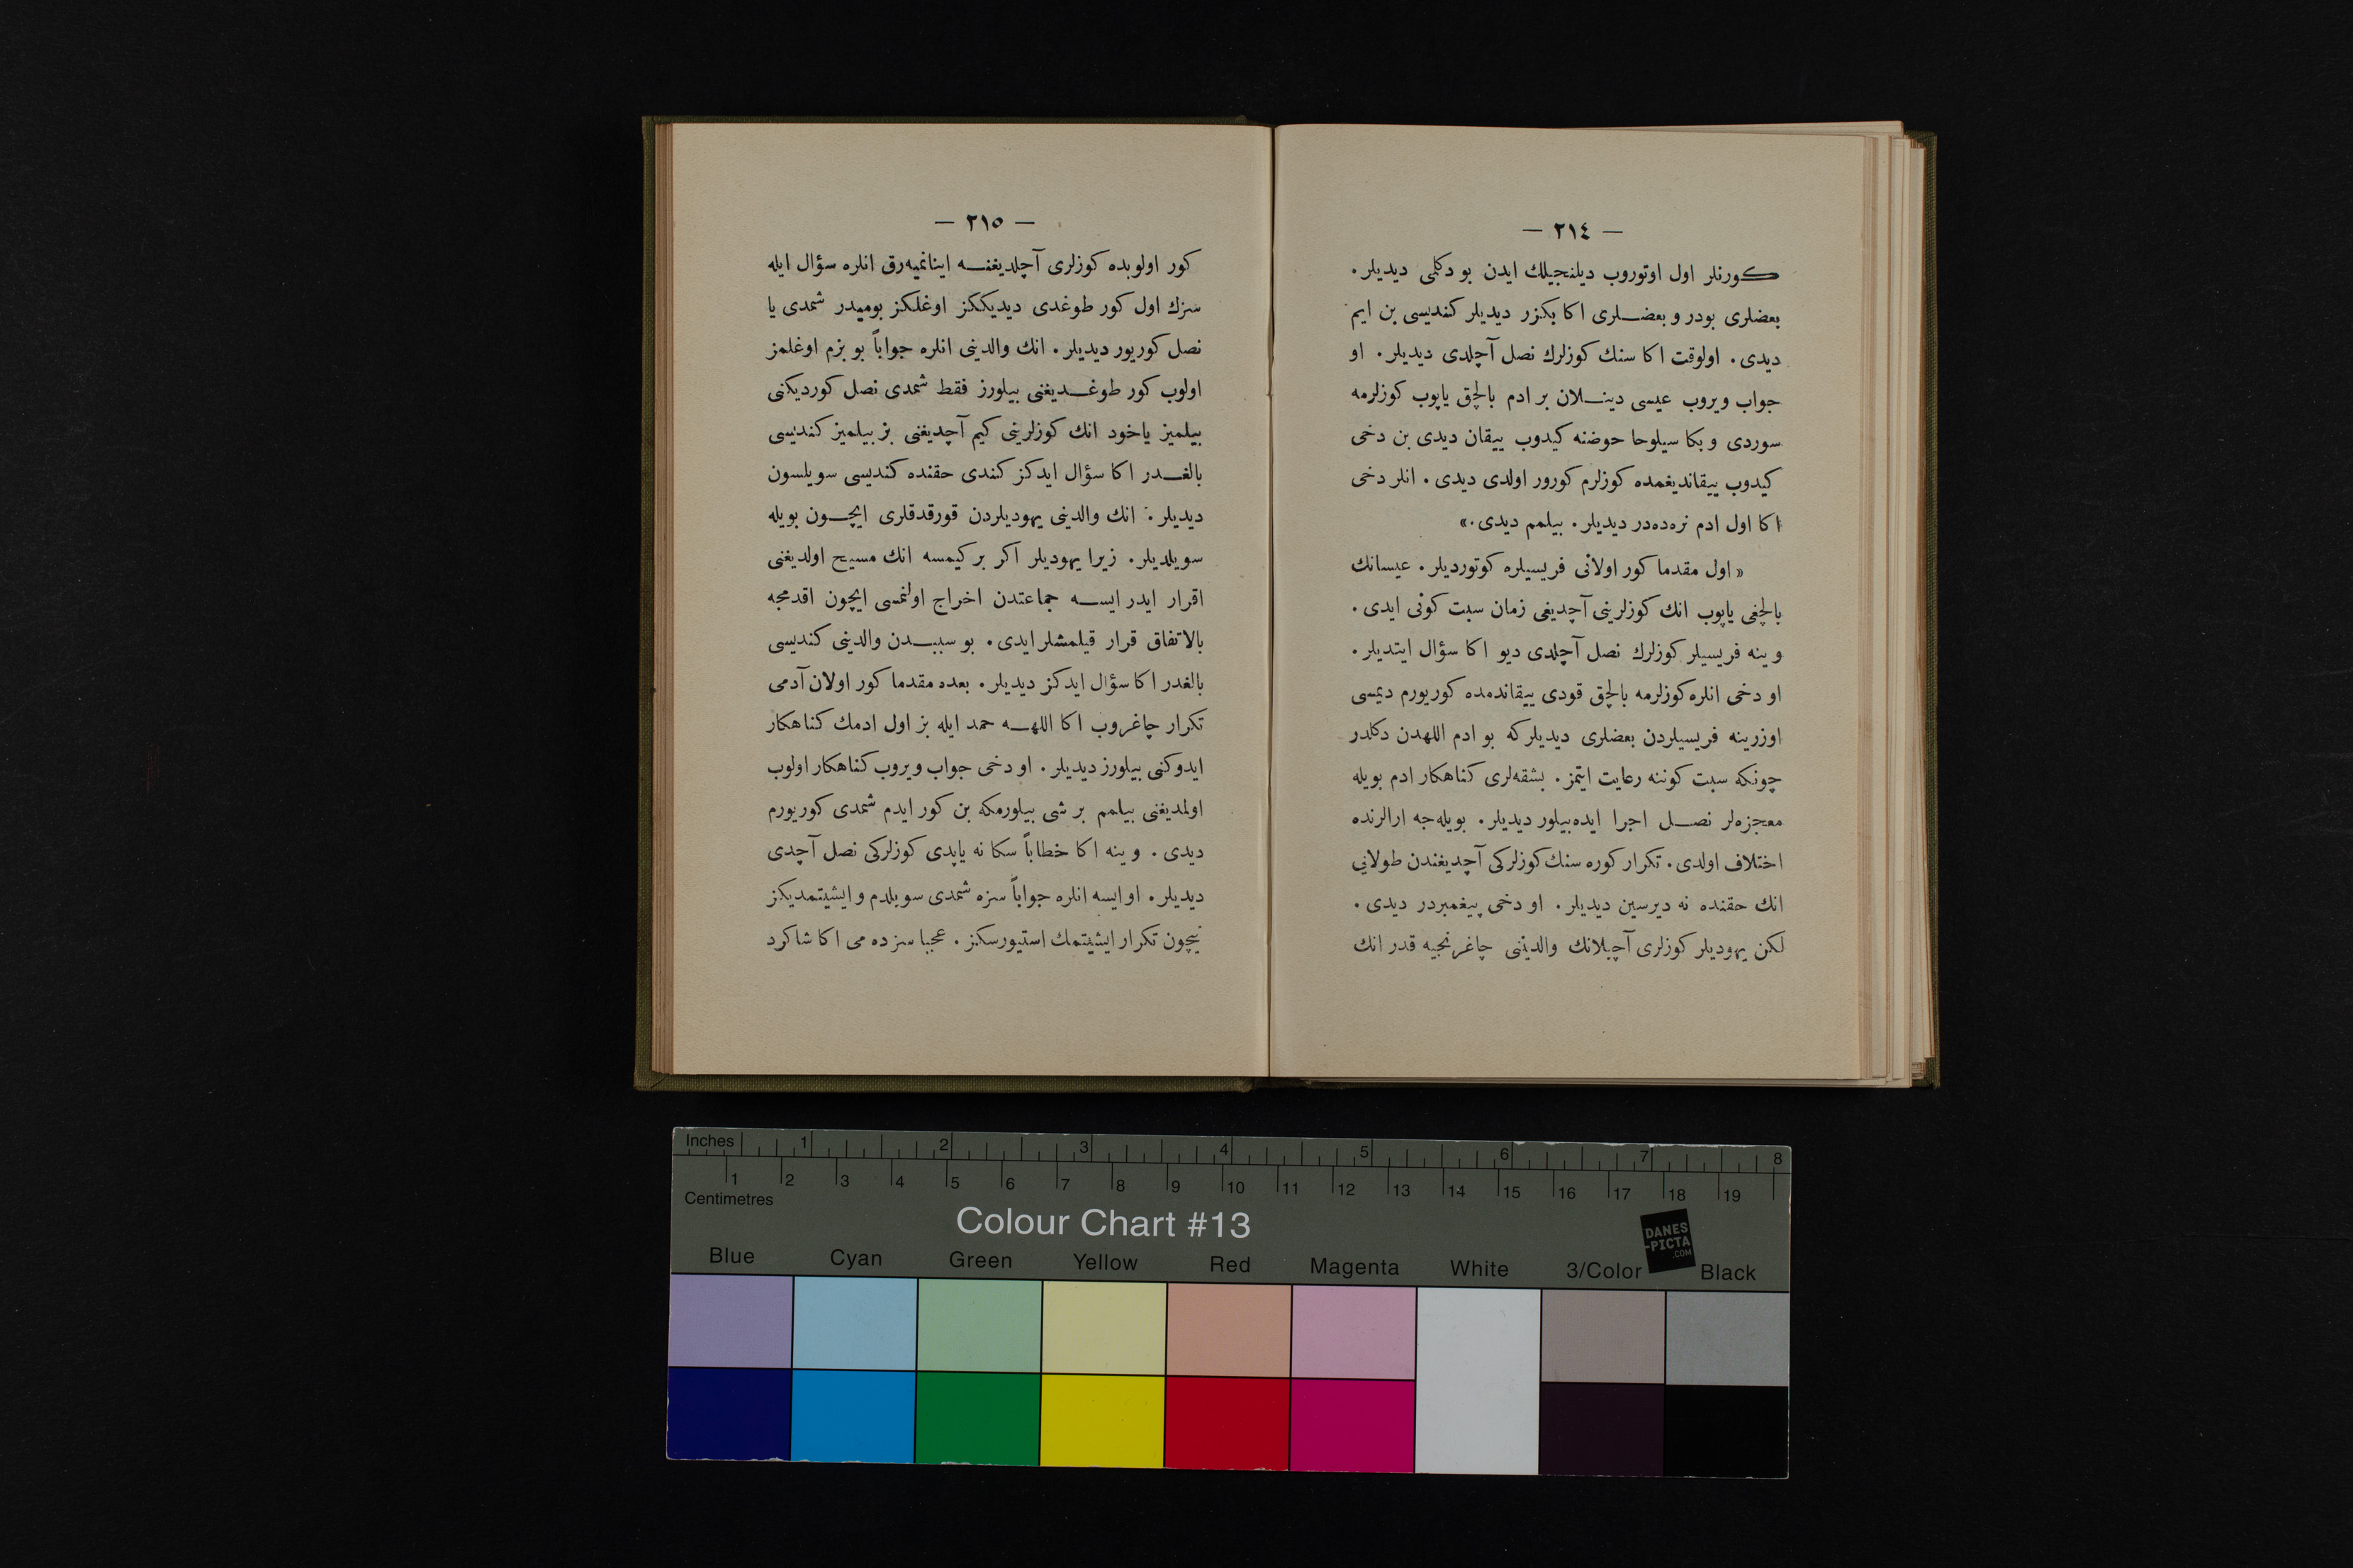 — ٢١٤ —
كورنلر اول اوتوروب ديلنجيلك ايدن بو دكلمى ديديلر.
بعضلرى بودر و بعضلرى اكا بكزر ديديلر كنديسى بن ايم
ديدى. اولوقت اكا سنك كوزلرك نصل آچلدى ديديلر. او
جواب ويروب عيسى دينلان بر ادم بالچق ياپوب كوزلرمه
سوردى و بكا سيلوحا حوضنه كيدوب ييقان ديدى بن دخى
كيدوب ييقانديغمده كوزلرم كورور اولدى ديدى. انلر دخى
اكا اول ادم نره‌ده‌در ديديلر. بيلمم ديدى.»
« اول مقدما كور اولانى فريسيلره كوتورديلر. عيسانك
بالچغى ياپوب انك كوزلرينى آچديغى زمان سبت كونى ايدى.
و ينه فريسيلر كوزلرك نصل آچلدى ديو اكا سؤال ايتديلر.
او دخى انلره كوزلرمه بالچق قودى ييقاندمده كوريورم ديمسى
اوزرينه فريسيلردن بعضلرى ديديلركه بو ادم اللهدن دكلدر
چونكه سبت كوننه رعايت ايتمز. بشقه‌لرى كناهكار ادم بويله
معجزه‌لر نصل اجرا ايده‌بيلور ديديلر. بويله‌جه ارالرنده
اختلاف اولدى. تكرار كوره سنك كوزلركى آچديغندن طولايى
انك حقنده نه ديرسين ديديلر. او دخى پيغمبردر ديدى.
لكن يهوديلر كوزلرى آچيلانك والديننى چاغرنجيه قدر انك
— ٢١٥ —
كور اولوبده كوزلرى آچلديغنه اينانميه‌رق انلره سؤال ايله
سزك اول كور طوغدى ديديككز اوغلكز بوميدر شمدى يا
نصل كوريور ديديلر. انك والدينى انلره جواباً بو بزم اوغلمز
اولوب كور طوغديغنى بيلورز فقط شمدى نصل كورديكنى
بيلميز ياخود انك كوزلرينى كيم آچديغنى بز بيلميز كنديسى
بالغدر اكا سؤال ايدكز كندى حقنده كنديسى سويلسون
ديديلر. انك والدينى يهوديلردن قورقدقلرى ايچون بويله
سويلديلر. زيرا يهوديلر اكر بر كيمسه انك مسيح اولديغنى
اقرار ايدر ايسه جماعتدن اخراج اولنمسى ايچون اقدمجه
بالاتفاق قرار قيلمشلر ايدى. بو سببدن والدينى كنديسى
بالغدر اكا سؤال ايدكز ديديلر. بعده مقدما كور اولان آدمى
تكرار چاغروب اكا اللهه حمد ايله بز اول ادمك كناهكار
ايدوكنى بيلورز ديديلر. او دخى جواب ويروب كناهكار اولوب
اولمديغنى بيلمم بر شى بيلورمكه بن كور ايدم شمدى كوريورم
ديدى. و ينه اكا خطاباً سكا نه ياپدى كوزلركى نصل آچدى
ديديلر. او ايسه انلره جواباً سزه شمدى سويلدم و ايشيتمديكز
نيچون تكرار ايشيتمك استيورسكز. عجبا سزده مى اكا شاكرد
Inches 1 2 3 4 5 6 7 8
1 2 3 4 5 6 7 8 9 10 11 12 13 14 15 16 17 18 19
Centimetres
Colour Chart #13
DANES
-PICTA
.COM
Blue Cyan Green Yellow Red Magenta White 3/Color Black